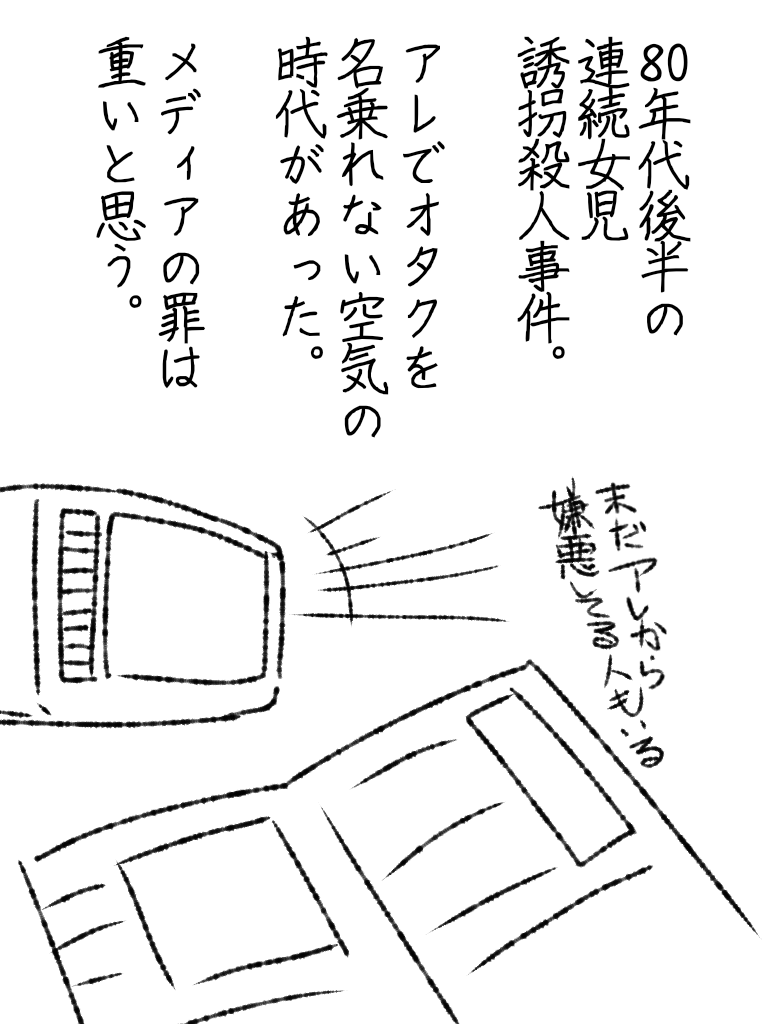 80年代後半の
連続女児
誘拐殺人事件。
アレでオタクを
名乗れない空気の
時代があった。
メディアの罪は
重いと思う。
未だアレから
嫌悪してる人もいる